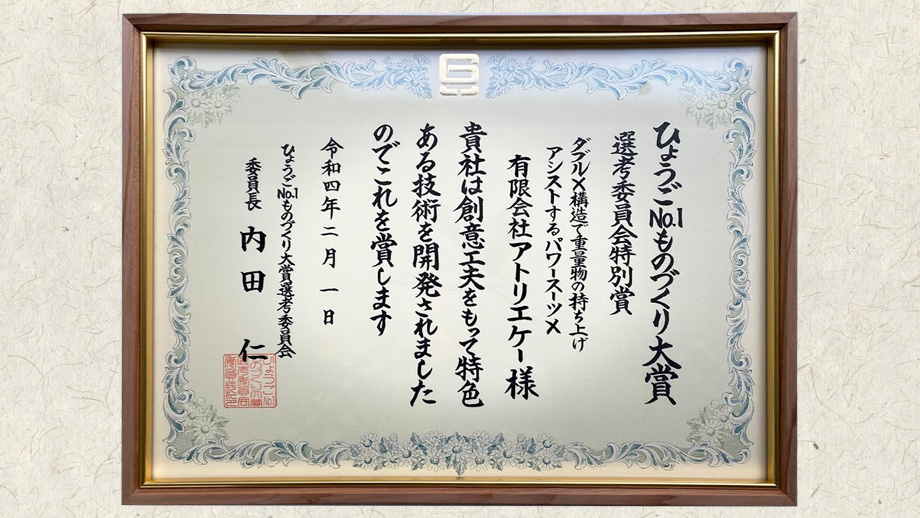 ひょうごNo.1ものづくり大賞
選考委員会特別賞
ダブルX構造で重量物の持ち上げ
アシストするパワースーツX
有限会社アトリエケー様
貴社は創意工夫をもって特色
ある技術を開発されました
のでこれを賞します
令和四年二月一日
ひょうごNo.1ものづくり大賞選考委員会
委員長 内田 仁